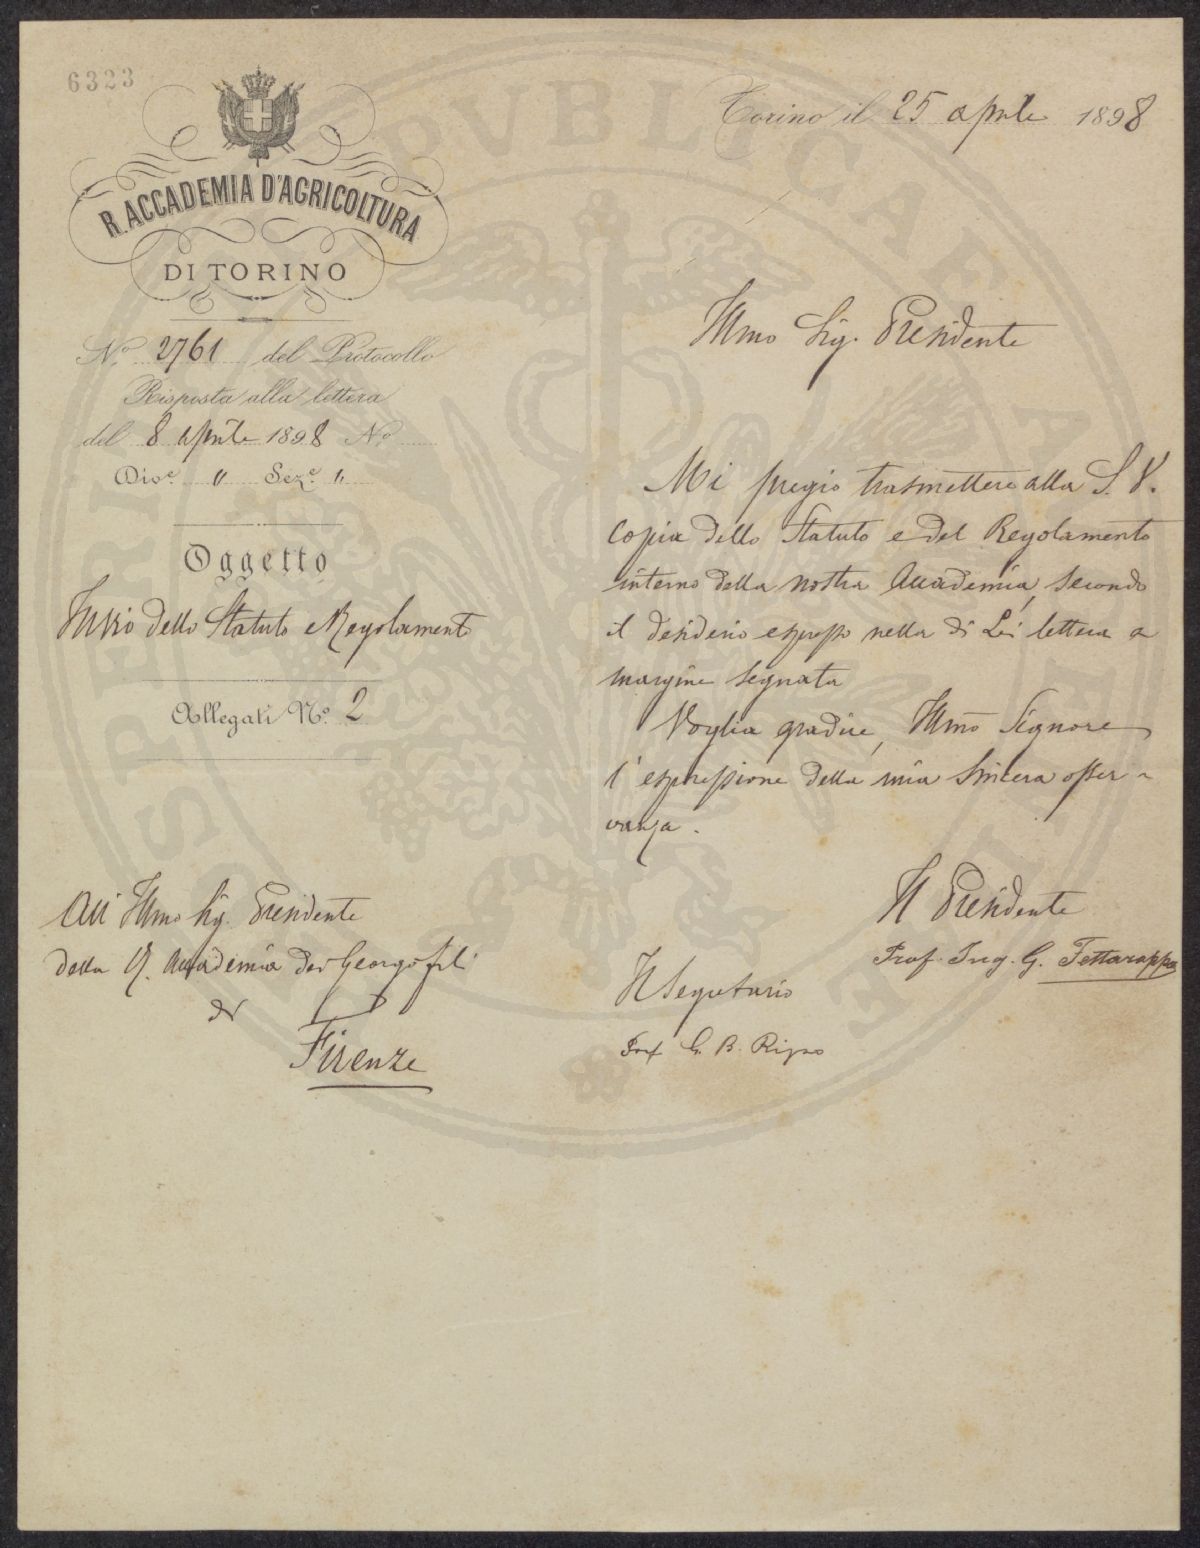 6323
R. ACCADEMIA D'AGRICOLTURA
DI TORINO
Torino il 25 aprile 1898
N.º 2761 del Protocollo
Risposta alla lettera
del 8 aprile 1898 N.º
Div.e " Sez.e "
Oggetto
Invio dello Statuto e Regolamento
Allegati N.º 2
Illmo Sig. Presidente
Mi pregio trasmettere alla S. V.
Copia dello Statuto e del Regolamento
interno della nostra Accademia, secondo
il desiderio espresso nella di Lei lettera a
margine segnata
Voglia gradire, Illmo Signore
l'espressione della mia sincera osser-
vanza.
Il Presidente
Prof. Ing. G. Fettarappa
Il Segretario
Prof G. B.
All' Illmo Sig. Presidente
della R. Accademia dei Georgofili
di
Firenze
PUBLICAE